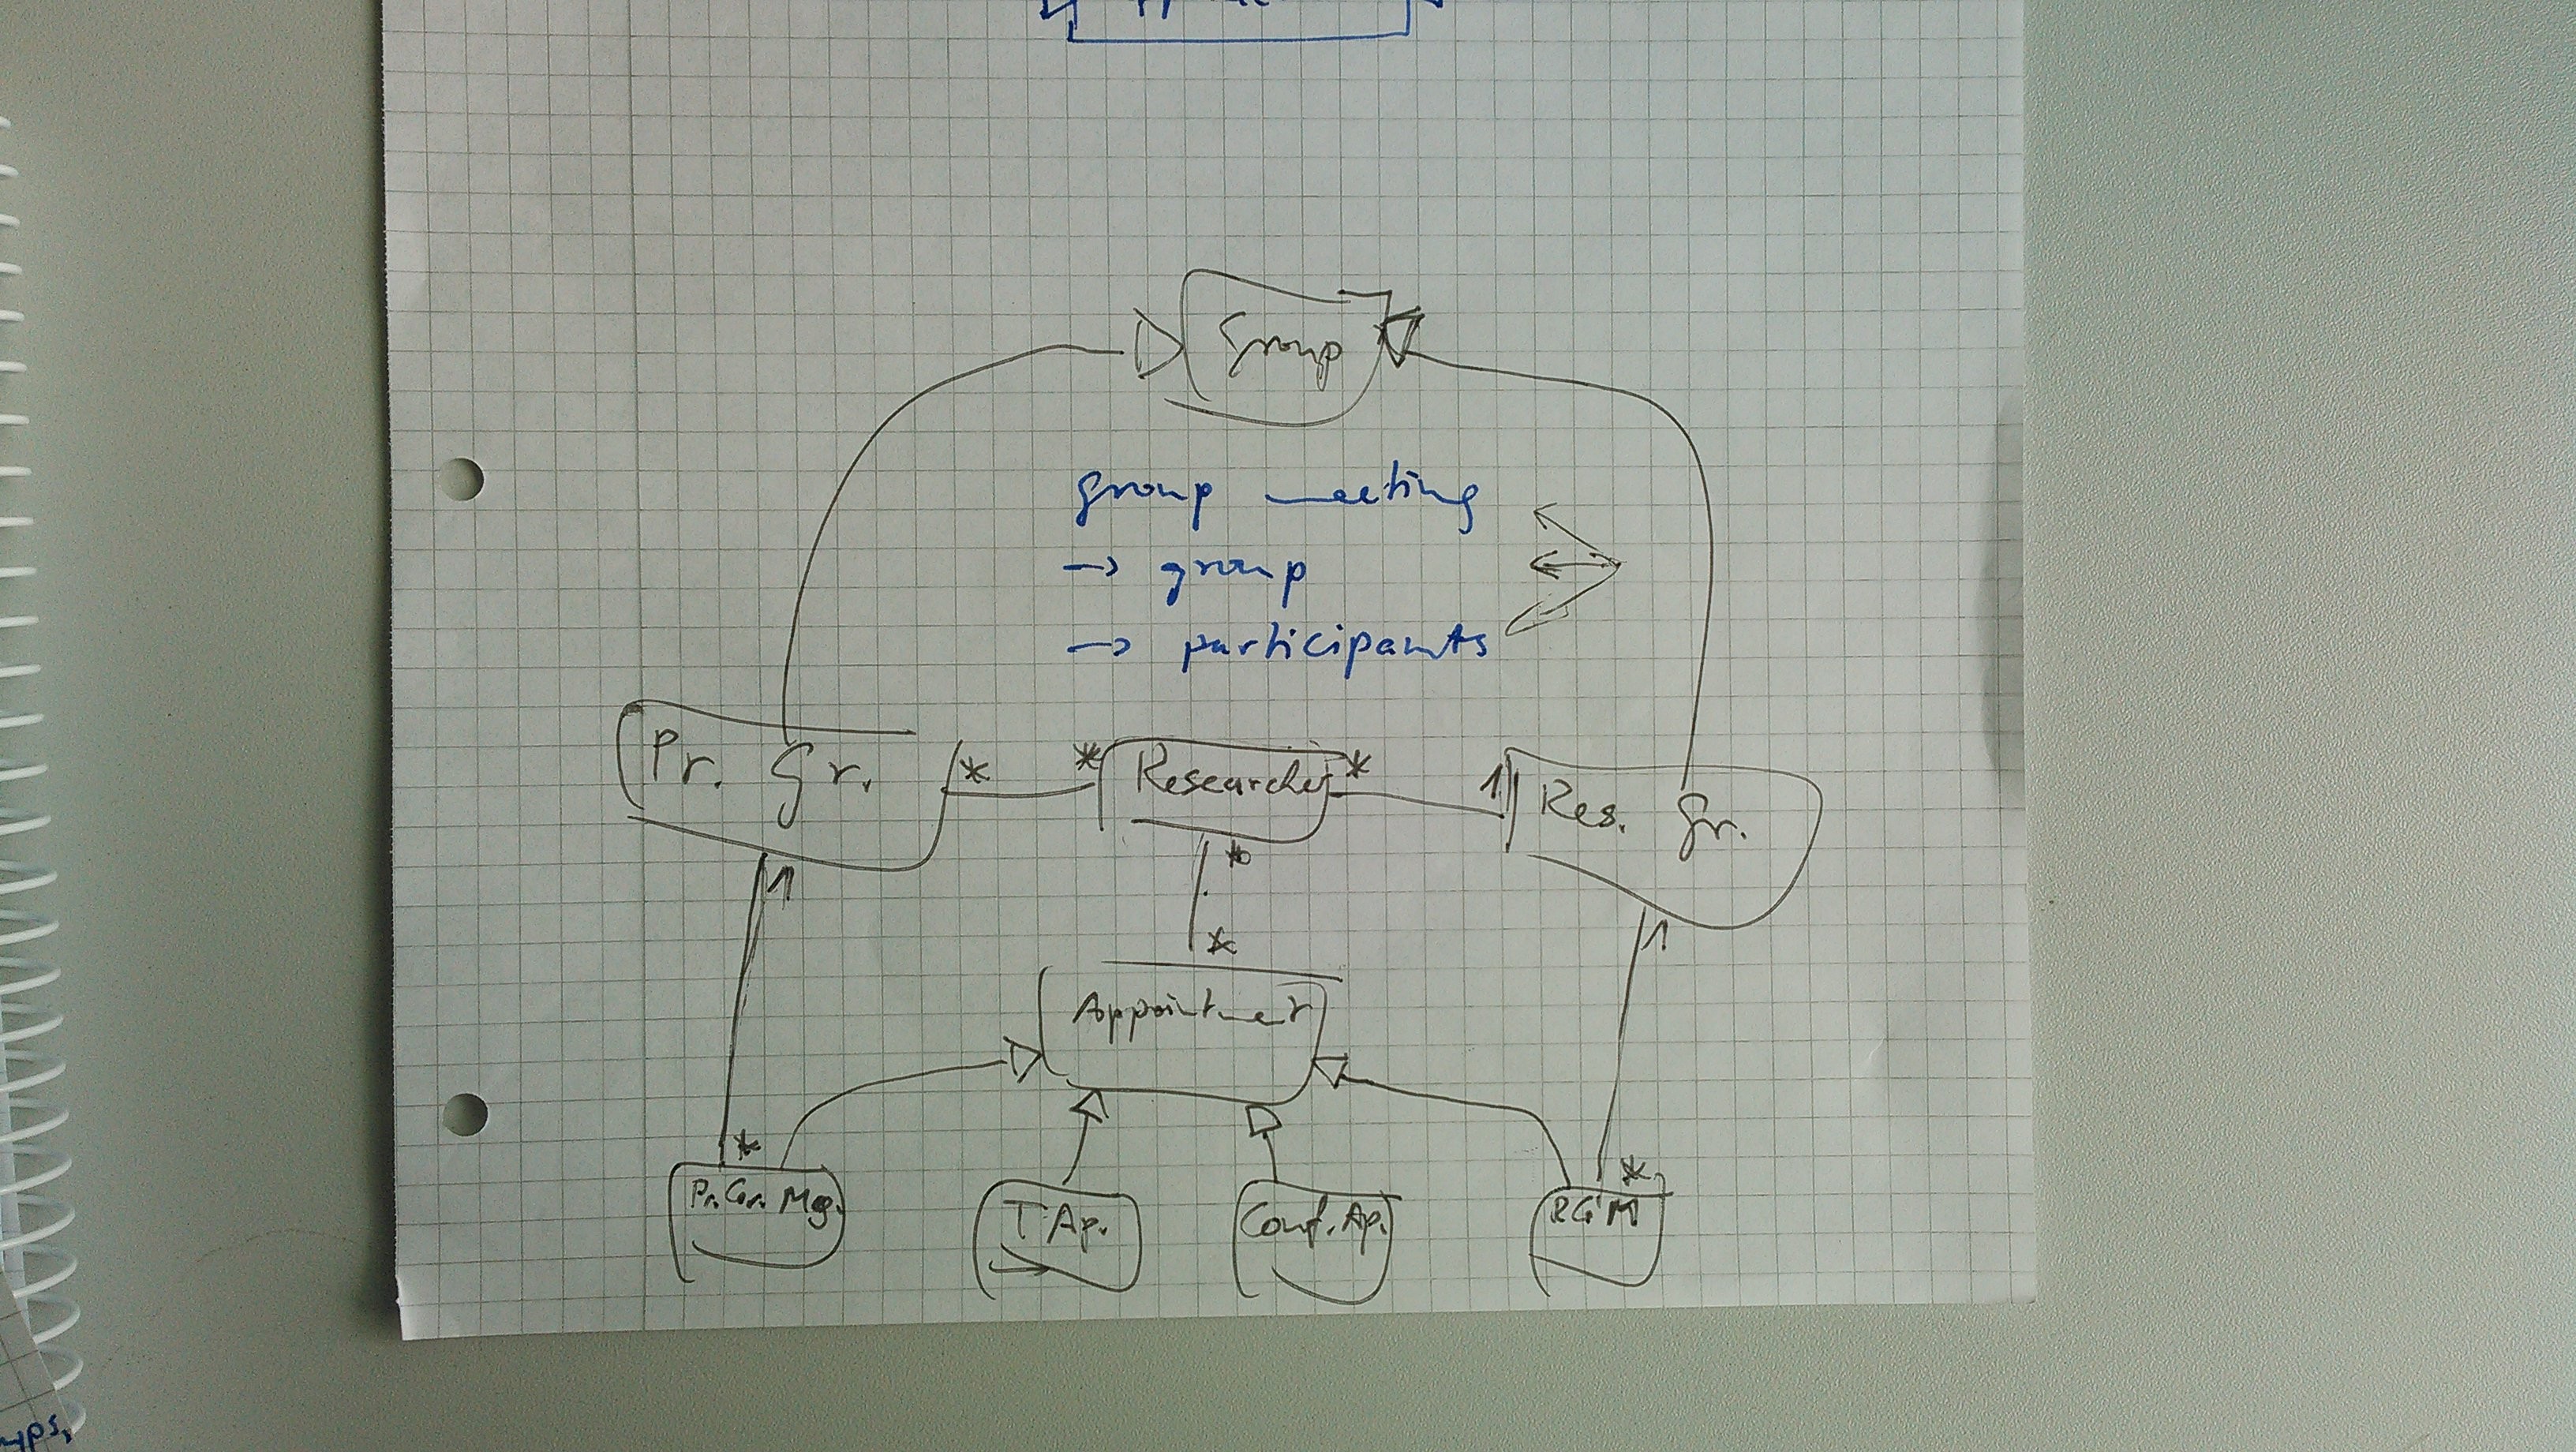 Group
group meeting
→ group
→ participants
Pr. Gr. * * Researcher * 1 Res. Gr.
1 * 1
*
Appointment
* *
Pr. Gr. Mg. T Ap. Conf. Ap. RGM
ups,